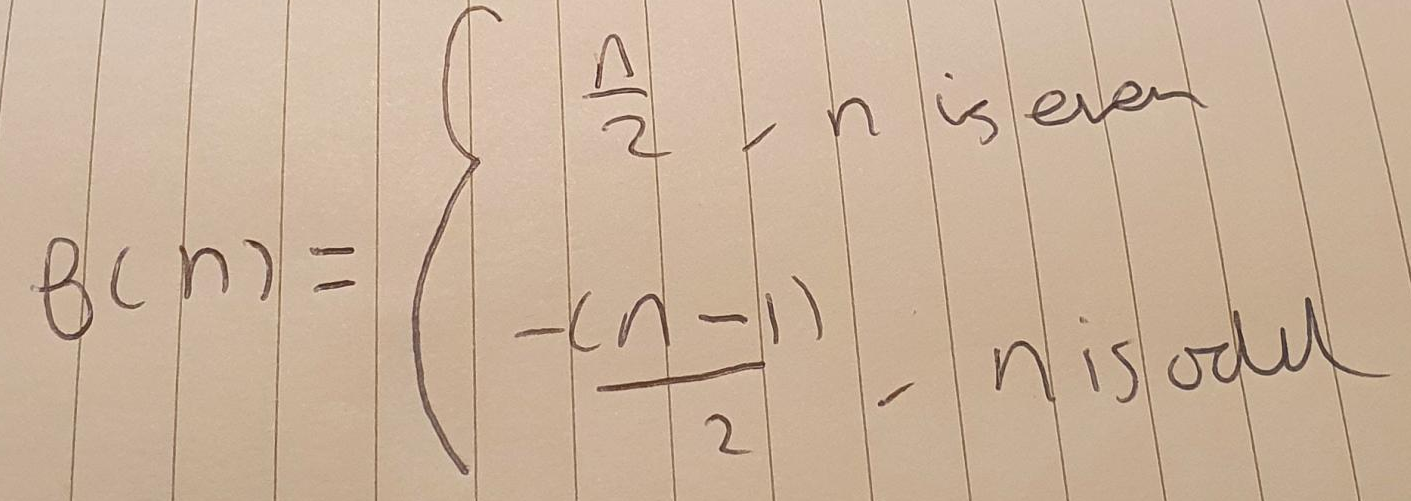 f(n) = { n/2, n is even
-(n-1)/2, n is odd